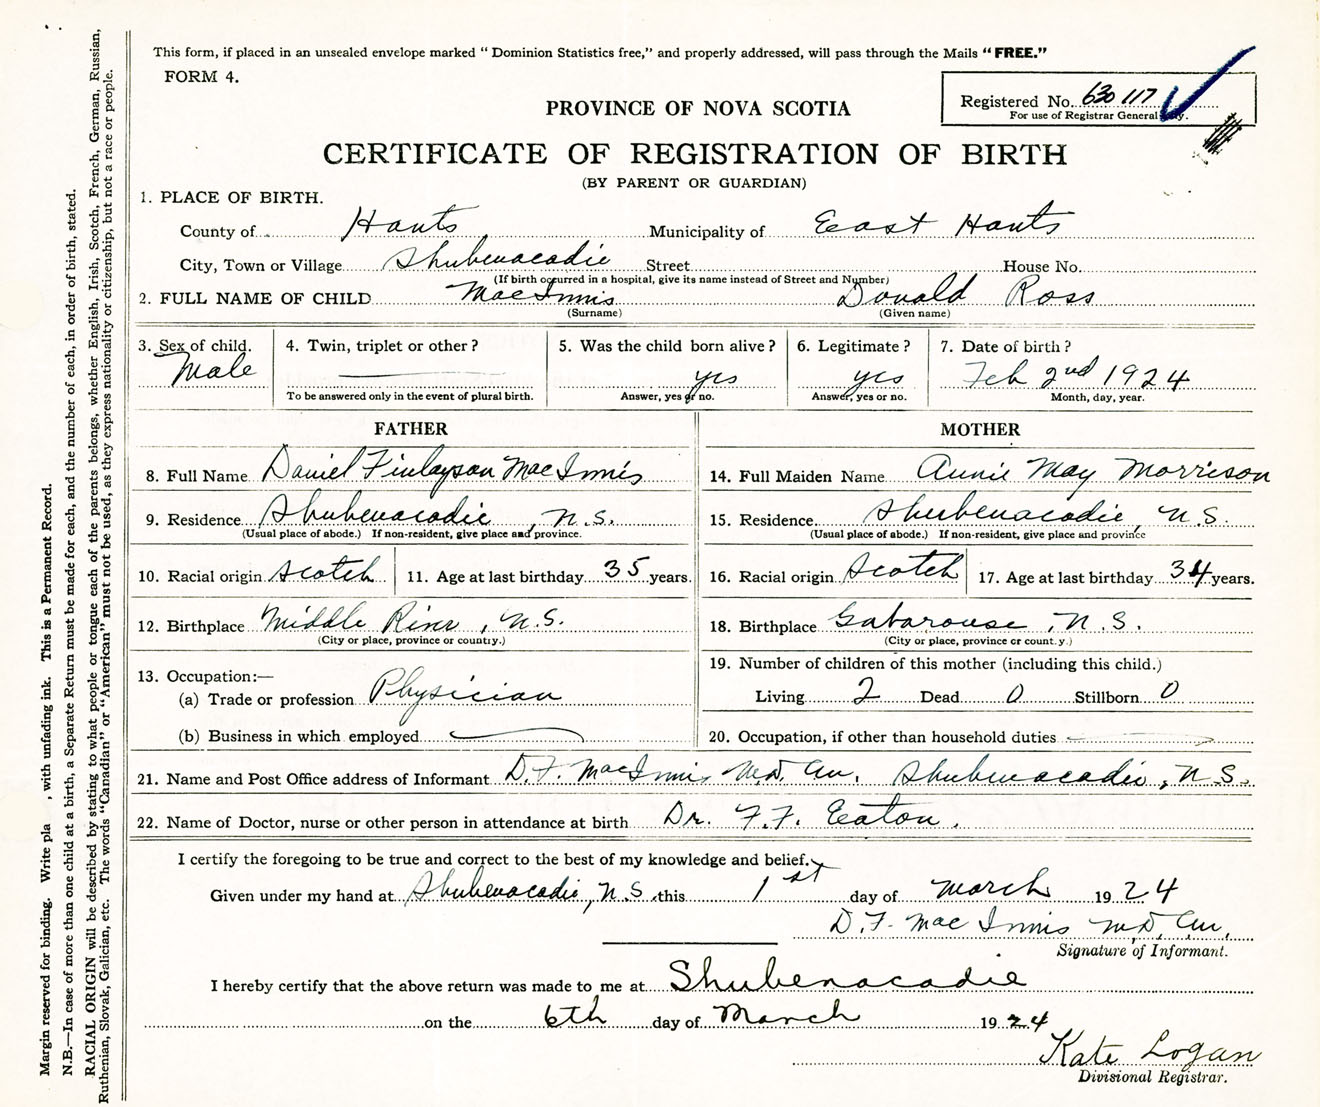 This form, if placed in an unsealed envelope marked “Dominion Statistics free,” and properly addressed, will pass through the Mails “FREE.”
FORM 4.
Registered No. 630 117
For use of Registrar General
PROVINCE OF NOVA SCOTIA
CERTIFICATE OF REGISTRATION OF BIRTH
(BY PARENT OR GUARDIAN)
1. PLACE OF BIRTH.
County of Hants Municipality of East Hants
City, Town or Village Shubenacadie Street House No.
(If birth occurred in a hospital, give its name instead of Street and Number)
2. FULL NAME OF CHILD MacInnis Donald Ross
(Surname) (Given name)
3. Sex of child. 4. Twin, triplet or other? 5. Was the child born alive? 6. Legitimate? 7. Date of birth?
Male yes yes Feb 2nd 1924
To be answered only in the event of plural birth. Answer, yes or no. Answer, yes or no. Month, day, year.
FATHER MOTHER
8. Full Name Daniel Finlayson MacInnis 14. Full Maiden Name Annie May Morrison
9. Residence Shubenacadie, N.S. 15. Residence Shubenacadie, N.S.
(Usual place of abode.) If non-resident, give place and province. (Usual place of abode.) If non-resident, give place and province
10. Racial origin Scotch 11. Age at last birthday 35 years. 16. Racial origin Scotch 17. Age at last birthday 34 years.
12. Birthplace Middle River, N.S. 18. Birthplace Gabarouse, N.S.
(City or place, province or country.) (City or place, province or country.)
13. Occupation:— 19. Number of children of this mother (including this child.)
(a) Trade or profession Physician Living 2 Dead 0 Stillborn 0
(b) Business in which employed 20. Occupation, if other than household duties
21. Name and Post Office address of Informant D.F. MacInnis M.D. C.M. Shubenacadie, N.S.
22. Name of Doctor, nurse or other person in attendance at birth Dr. F.F. Eaton.
I certify the foregoing to be true and correct to the best of my knowledge and belief.
Given under my hand at Shubenacadie, N.S. this 1st day of March 1924
D.F. MacInnis M.D. C.M.
Signature of Informant.
I hereby certify that the above return was made to me at Shubenacadie
on the 6th day of March 1924
Kate Logan
Divisional Registrar.
Margin reserved for binding. Write pla , with unfading ink. This is a Permanent Record.
N.B.—In case of more than one child at a birth, a Separate Return must be made for each, and the number of each, in order of birth, stated.
RACIAL ORIGIN will be described by stating to what people or tongue each of the parents belongs, whether English, Irish, Scotch, French, German, Russian,
Ruthenian, Slovak, Galician, etc. The words “Canadian” or “American” must not be used, as they express nationality or citizenship, but not a race or people.